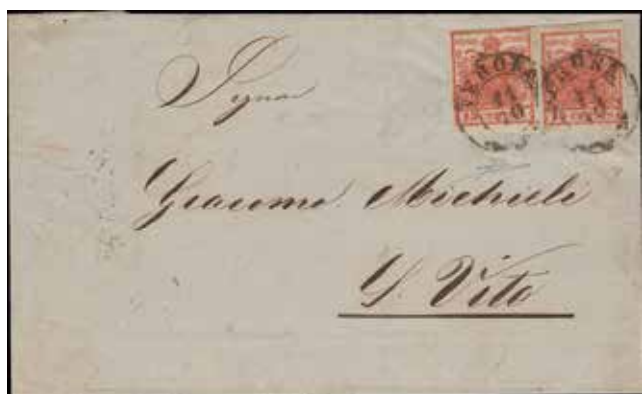 VERONA
VERONA
11
10
Signor
Giacomo Michieli
S. Vito